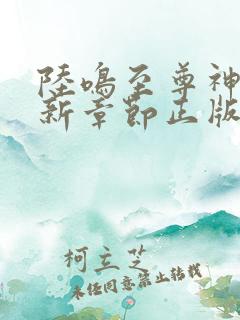 陸鳴至尊神
新章節正版
柯立芝
未经同意禁止转载